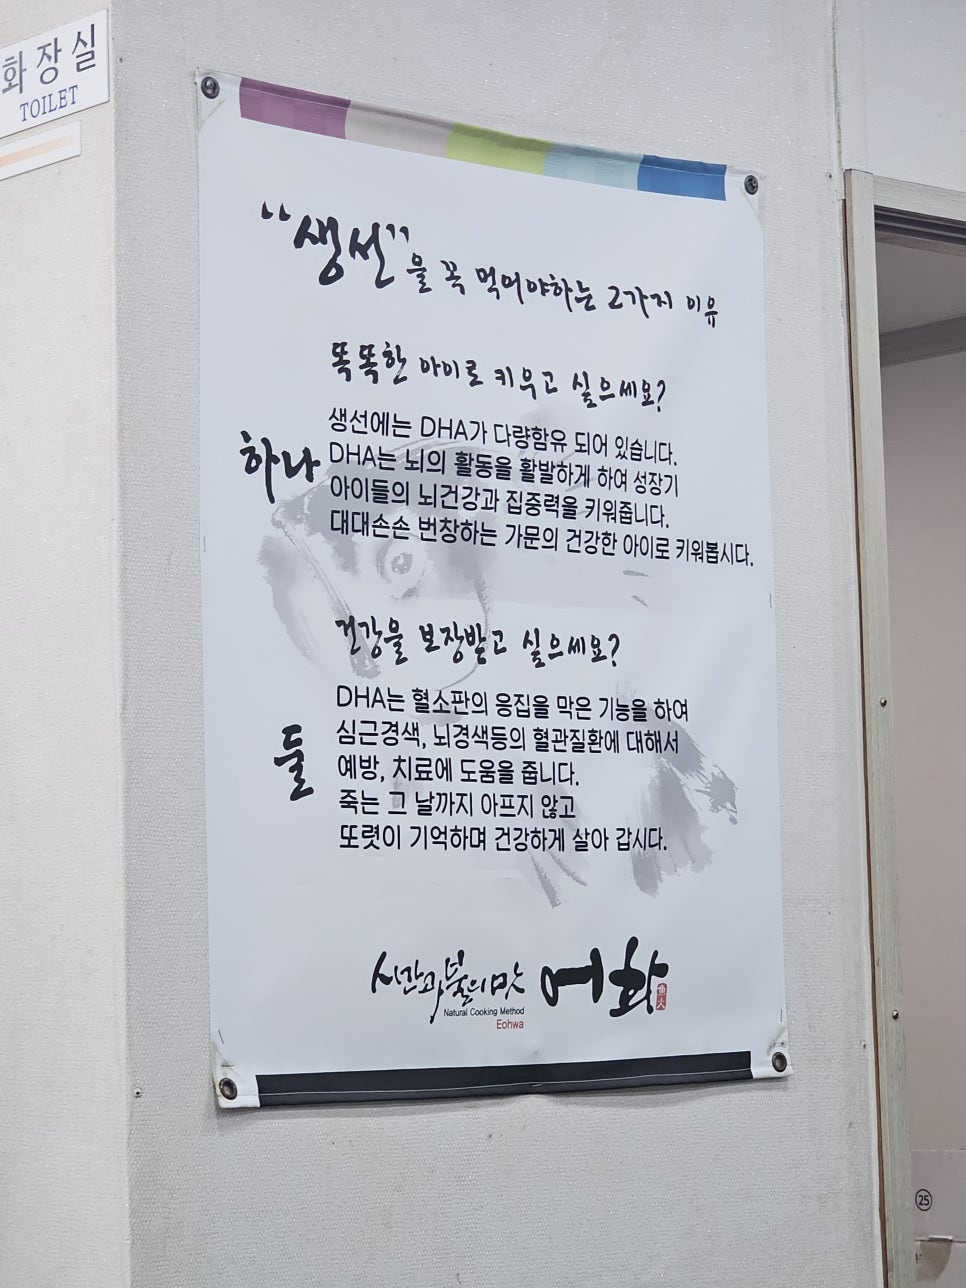 화장실
TOILET
"생선"을 꼭 먹어야하는 2가지 이유
똑똑한 아이로 키우고 싶으세요?
하나
생선에는 DHA가 다량함유 되어 있습니다.
DHA는 뇌의 활동을 활발하게 하여 성장기
아이들의 뇌건강과 집중력을 키워줍니다.
대대손손 번창하는 가문의 건강한 아이로 키워봅시다.
건강을 보장받고 싶으세요?
둘
DHA는 혈소판의 응집을 막은 기능을 하여
심근경색, 뇌경색등의 혈관질환에 대해서
예방, 치료에 도움을 줍니다.
죽는 그 날까지 아프지 않고
또렷이 기억하며 건강하게 살아 갑시다.
시간과 불의 맛
Natural Cooking Method
Eohwa
어화
魚火
25